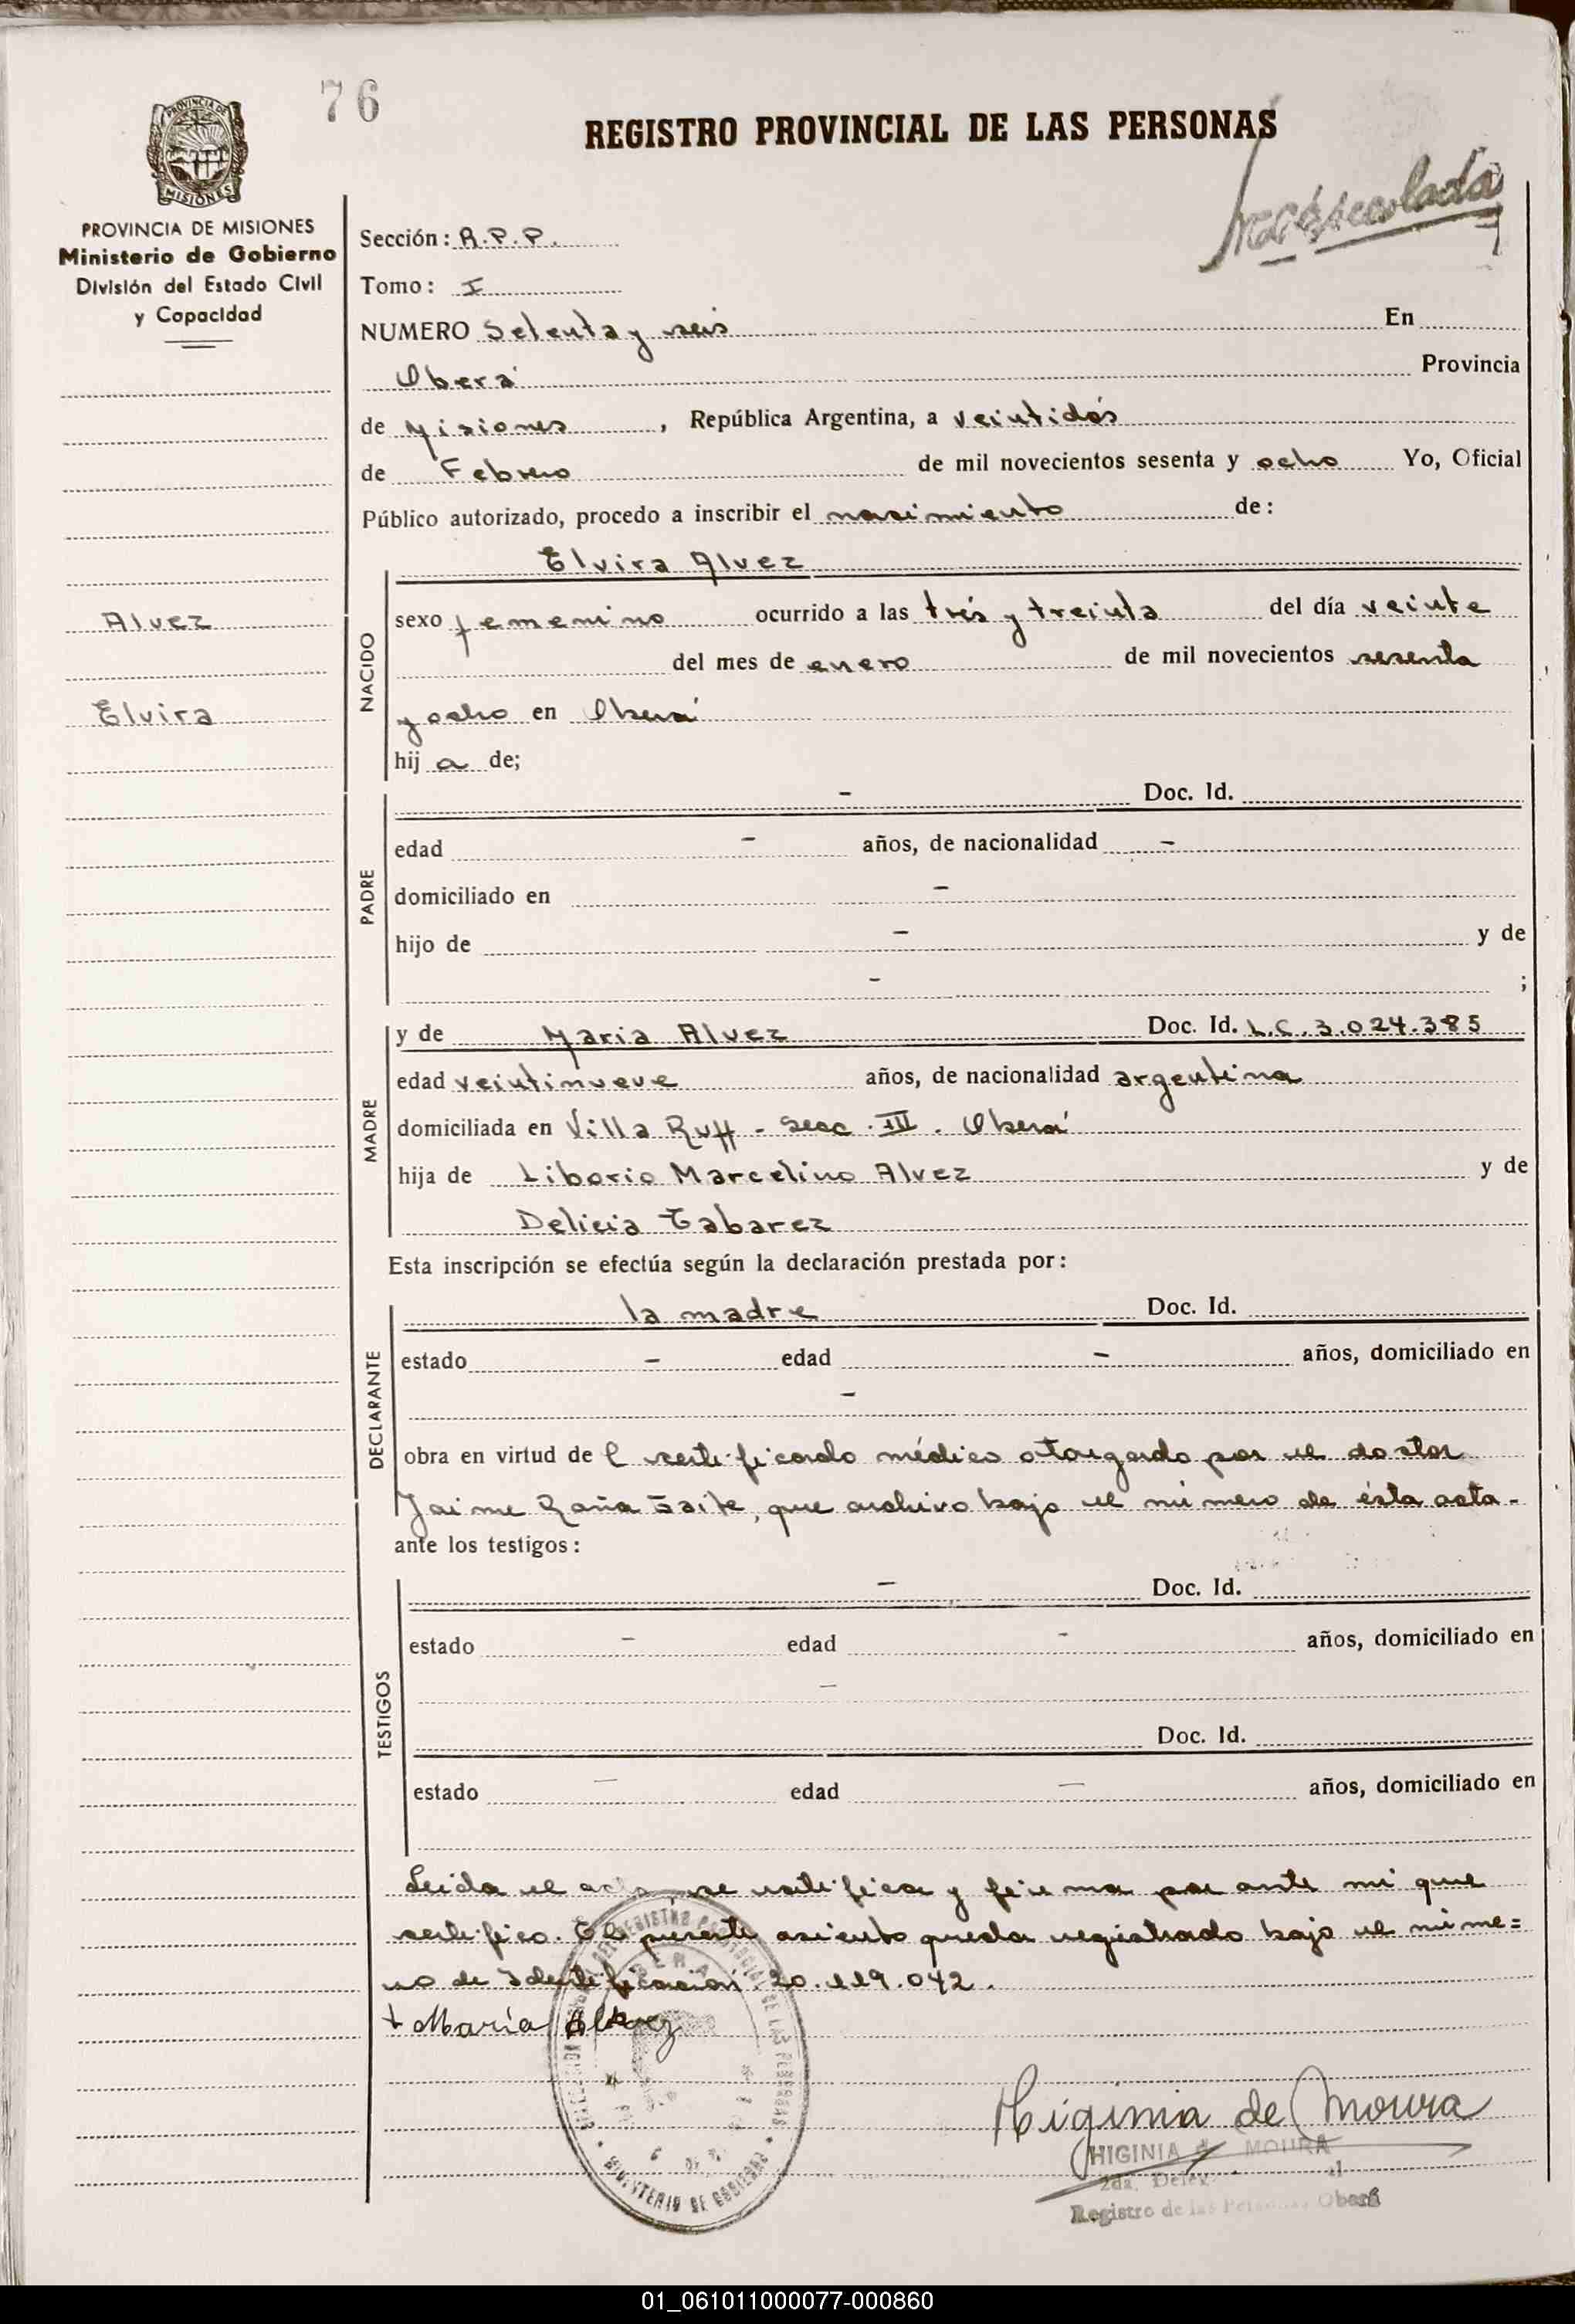 76
PROVINCIA DE
MISIONES
REGISTRO PROVINCIAL DE LAS PERSONAS
PROVINCIA DE MISIONES
Ministerio de Gobierno
División del Estado Civil
y Capacidad
Alvez
Elvira
Sección: R.P.P.
Tomo: I
NUMERO Setenta y seis En
Oberá Provincia
de Misiones, República Argentina, a veintidós
de Febrero de mil novecientos sesenta y ocho Yo, Oficial
Público autorizado, procedo a inscribir el nacimiento de:
NACIDO
Elvira Alvez
sexo femenino ocurrido a las trés y treinta del día veinte
del mes de enero de mil novecientos sesenta
y ocho en Oberá
hij a de;
PADRE
- Doc. Id.
edad - años, de nacionalidad -
domiciliado en -
hijo de - y de
- ;
MADRE
y de Maria Alvez Doc. Id. L.C. 3.024.385
edad veintinueve años, de nacionalidad argentina
domiciliada en Villa Ruff - Secc. III. Oberá
hija de Liborio Marcelino Alvez y de
Delicia Tabarez
Esta inscripción se efectúa según la declaración prestada por:
DECLARANTE
la madre Doc. Id.
estado - edad - años, domiciliado en
-
obra en virtud de l certificado médico otorgado por el doctor
Jaime, que archivo bajo el número de ésta acta-
ante los testigos:
TESTIGOS
- Doc. Id.
estado - edad - años, domiciliado en
-
Doc. Id.
estado - edad - años, domiciliado en
Leida el acta, se ratifica y firma por ante mi que
certifico. El presente asiento queda registrado bajo el núme=
ro de Identificación 20.119.042.
+ María Alvez
OBERA
MINISTERIO DE GOBIERNO
Higinia de Moura
HIGINIA d MOURA
2da. Deleg
Registro de las Personas Oberá
01_061011000077-000860